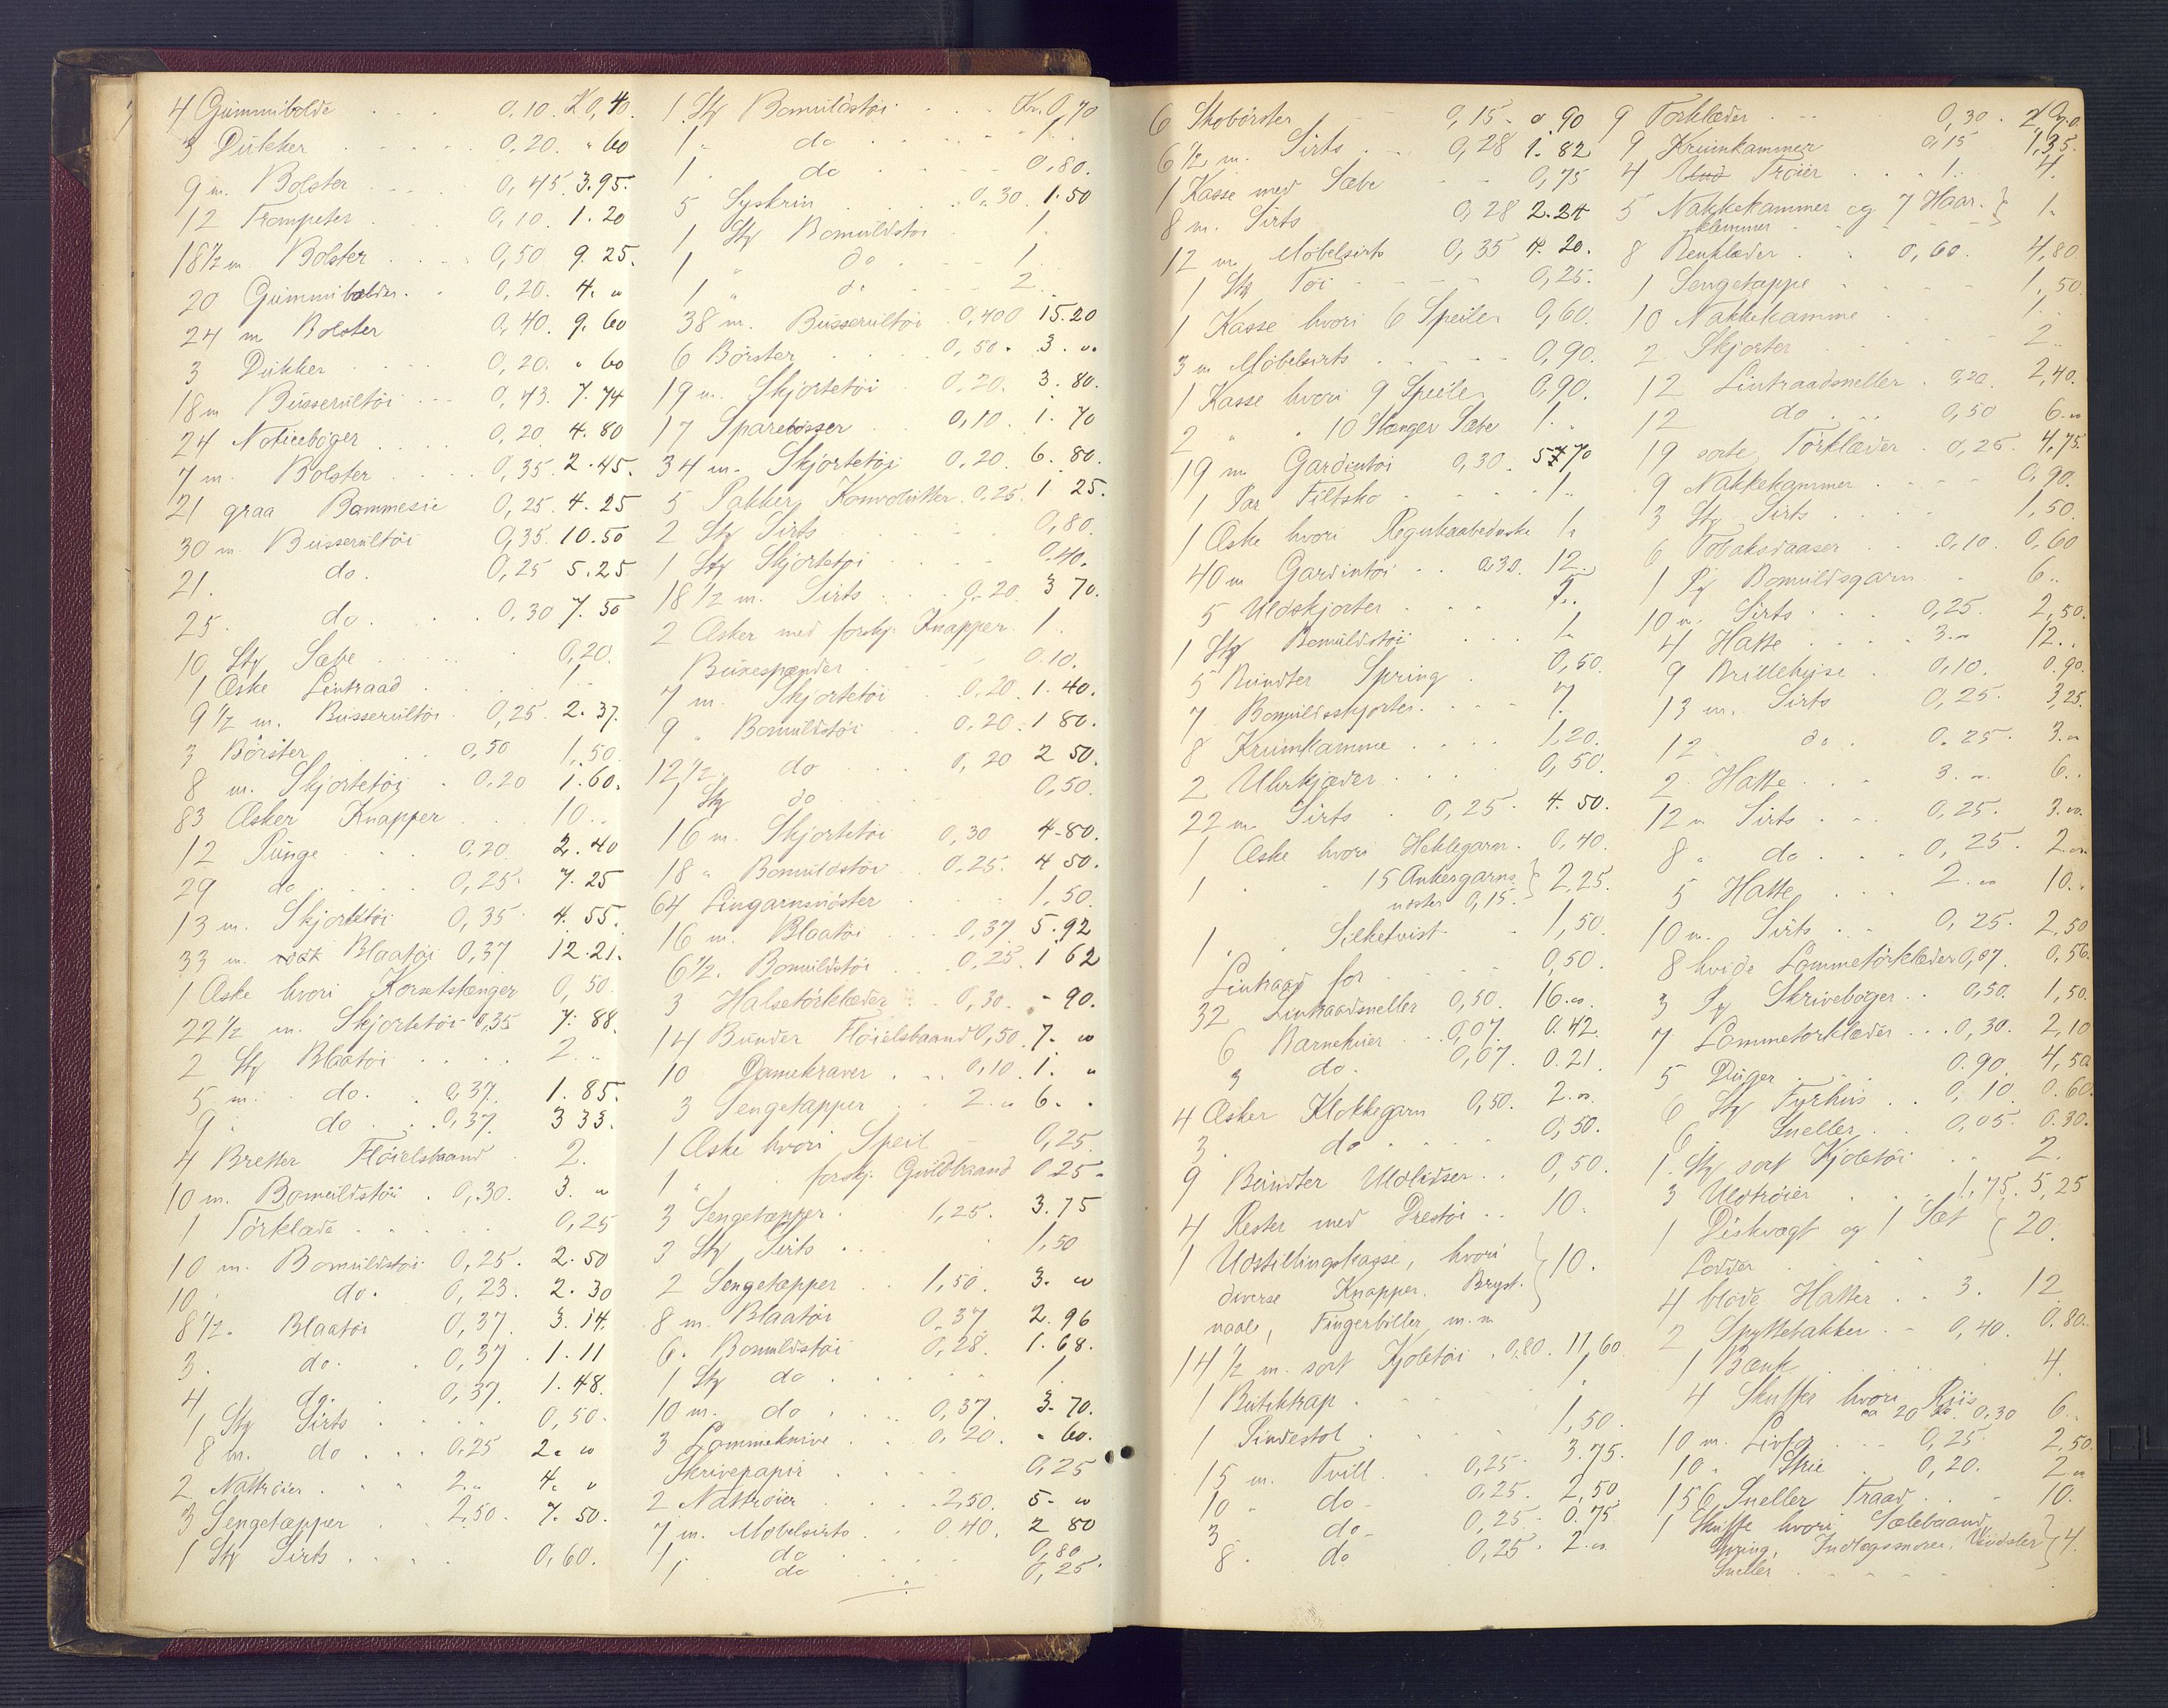 4 Gummibolde . . . 0,10. K 0,40.
3 Dukker . . . . 0,20. " 60
9 m. Bolster . . . 0,45. 3.95.
12 Trompeter . . 0,10. 1.20
18 1/2 m. Bolster . . . 0,50 9.25.
20 Gummibolde . . 0,20. 4. "
24 m Bolster 0,40. 9.60
3 Dukker . . . 0,20. " 60
18 m Busserultøi . . 0,43. 7.74
24 Noticebøger . . . 0,20. 4.80
7 m. Bolster . . . 0,35. 2.45.
21 graa Bommesie 0,25. 4.25
30 m. Busserultøi 0,35. 10.50
21. do. 0,25 5.25
25. do. . . 0,30 7.50
10 Stk Sæbe . . . . 0,20.
1 Æske Lintraad . . . . 1. "
9 1/2 m. Busserultøi. 0,25. 2.37.
3 Börster . . 0,50 1,50.
8 m. Skjortetøi . 0,20 1.60.
83 Æsker Knapper . . . 10. .
12 Punge . . . 0,20 2.40
29 do . . . . 0,25. 7.25
13 m. Skjortetøi 0,35. 4.55.
33 m. Blaatøi 0,37 12.21.
1 Æske hvori Korsetstænger 0,50.
22 1/2 m. Skjortetøi 0,35 7.88.
2 Stk Blaatøi . . . . 2. .
5 m. do. . 0,37. 1.85.
9 " do . . 0,37. 3 33.
4 Bretter Fløielsbaand . 2.
10 m. Bomuldstøi . 0,30. 3. "
1 Törklæde . . . . 0,25
10 m. Bomuldstøi 0,25. 2.50
10 do. 0,23. 2.30
8 1/2 " Blaatøi 0,37. 3.14.
3. do. . 0,37. 1.11
4 do. . 0,37. 1.48.
1 Stk Sirts . . . . 0,50.
8 m. do . . . 0,25 2. "
2 Nattrøier . . . 2. " 4. "
3 Sengetæpper . . 2,50. 7.50.
1 Stk Sirts . . . . 0,60.
1 Stk Bomuldstøi . . . Kr. 0,70
1 " do . . . . 1.
1. do . . . . 0,80.
5 Syskrin . . . 0,30. 1.50
1 Stk Bomuldstøi . 1.
1 " do . . . 1.
1 " do . . . 2.
38 m. Busserultøi 0,400 15.20
6 Börster . . . 0,50. 3. "
19 m. Skjortetøi . 0,20. 3.80.
17 Sparebøsser . . 0,10. 1.70
34 m. Skjortetøi 0,20. 6.80.
5 Pakker Konvolutter. 0,25. 1 25.
2 Stk Sirts . . . . 0,80.
1 Stk Skjortetøi . . . 0,40.
18 1/2 m. Sirts . . . 0,20. 3 70.
2 Æsker med forskj. Knapper. 1.
Buxespænder . . . 0.10.
7 m. Skjortetøi . . 0,20. 1.40.
9 " Bomuldstøi . . 0,20. 1 80.
12 1/2 " do . . 0,20 2 50.
1 Stk do . . . . 0,50.
16 m. Skjortetøi 0,30 4-80.
18 " Bomuldstøi . 0,25. 4 50.
64 Lingarnsnöster . . . 1,50.
16 m. Blaatøi . . 0,37 5.92
6 1/2. Bomuldstøi . . 0,25. 1 62
3 Halsetörklæder . . 0,30. - 90.
14 Bunder Fløielsbaand 0,50. 7. "
10 Damekraver . . . 0,10. 1. "
3 Sengetæpper . . 2. " 6. .
1 Æske hvori Speil - 0,25.
1 " . forskj. Guldbaand 0,25 -
3 Sengetæpper . 1,25. 3.75
3 Stk Sirts . . . 1,50
2 Sengetæpper . 1,50. 3. "
8 m. Blaatøi 0,37 2.96
6. Bomuldstøi . 0,28. 1.68.
1 Stk do . . . . 1.
10 m. do . . . 0,37. 3.70.
3 Lommeknive . . 0,20. . 60.
Skrivepapir . . . . 0,25
2 Nattrøier . . . 2,50. 5- "
7 m. Møbelsirts . . 0,40. 2 80
1. do . . . 0,80
1. do . . . 0,25.
6 Skobörster - - 0,15 - 0.90
6 1/2 m. Sirts . . 0,28 1.82
1 Kasse med Sæbe - - 0,75
8 m. Sirts 0,28 2.24
12 m. Møbelsirts 0,35 4.20.
1 Stk Töi . . . . 0,25.
1 Kasse hvori 6 Speile 0,60.
3 m Møbelsirts . . . . 0,90.
1 Kasse hvori 9 Speile 0,90.
2 " " 10 Stænger Sæbe 1. "
19 m Gardintøi 0,30. 5 70
1 Par Filtsko . . . . 1 "
1 Æske hvori 1 "
40 m Gardintøi . . 0,30. 12. "
5 Uldskjorter . . . 7. .
1 Stk Bomuldstøi . . . 1 "
5 Bundter Spring . . 0,50.
7 Bomuldsskjorter . . . 7.
8 Krumkamme . . . . 1,20.
2 Uhrkjæder . . . . 0,50.
22 m. Sirts . 0,25. 4.50.
1 Æske hvori Heklegarn. 0,40.
1 " " 15 Ankergarns } 2,25.
nøster 0,15. -
1. " Silketvist . 1,50.
Lintraad for . . . . 0,50.
32 Lintraadsneller 0,50. 16. "
6 Barnehuer . . 0,07. 0.42
3 do. 0,07. 0.21.
4 Æsker Klokkegarn 0,50. 2. "
3. do . . . . 0,50.
9 Bundter Uldlidser . . 0,50.
4 Rester med Prestøi . . 10.
1 Udstillingskasse, hvori } 10.
diverse Knapper. Bryst-
naale, Fingerbøller m. m
14 1/2 m. sort Kjoletøi . 0,80. 11,60.
1 Butiktrap . . . . 1.
1 Pindestol . . . . 1,50.
15 m. Tvill . . 0,25. 3.75.
10 " do - 0,25. 2,50
3 do - 0,25 - 0.75
8. do 0,25. 2. "
9 Törklæder . . . 0,30. 2.70.
9 Krumkammer 0,15 1,35.
4 Trøier . . . 1. . 4.
5 Nakkekammer og 7 Haar- } 1.
klemmer - . - - -
8 Benklæder . . 0,60. 4,80.
1 Sengetæppe . . . . 1,50.
10 Nakkekamme . . . 1. .
2 Skjorter . . . . 2. .
12 Lintraadsneller . 0,20. 2,40.
12 do . . . 0,50 6. "
19 sorte Törklæder . 0,25. 4,75.
9 Nakkekammer . . . . 0,90.
3 Stk Sirts . . . . 1,50.
6 Tobaksdaaser . . 0,10. 0,60
1 Pk Bomuldsgarn . 6. .
10 m. Sirts . . . 0,25. 2,50.
4 Hatte . . . . 3. " 12. .
9 Brillehuse . . 0,10. 0.90.
13 m. Sirts 0,25. 3,25.
12. do . 0.25. 3. "
2 Hatte . . . 3. " 6. .
12 " Sirts . . . 0,25. 3. "
8 " do . . . 0,25. 2. "
5 Hatte . . . 2. " 10. .
10 m. Sirts . . . 0,25. 2,50
8 hvide Lommetörklæder 0,07. 0,56.
3 Pk Skrivebøger . . 0,50. 1,50.
7 Lommetörklæder . . . 0,30. 2,10
5 Duger . . . . 0.90. 4,50
6 Stk Fyrhus . . 0,10. 0.60.
6 Sneller . . 0,05. 0.30.
1. Stk sort Kjoletøi . . 2.
3 Uldtrøier . . . 1,75. 5,25
1 Diskvægt og 1 Sæt } 20.
Lodder . . . .
4 bløde Hatter . . 3. 12
2 Spyttebakker . - 0,40. 0.80.
1 Bænk . . . . . 4.
4 Skuffer hvori Riis
ca 20 0,30 6. .
10 m. . . . 0,25. 2,50.
10 " Strie . 0,20. 2 "
156 Sneller Traad . . - 10.
1 Skuffe hvori Sælebaand, } 4.
Spring, Indlægssnorer,
Sneller . . . .